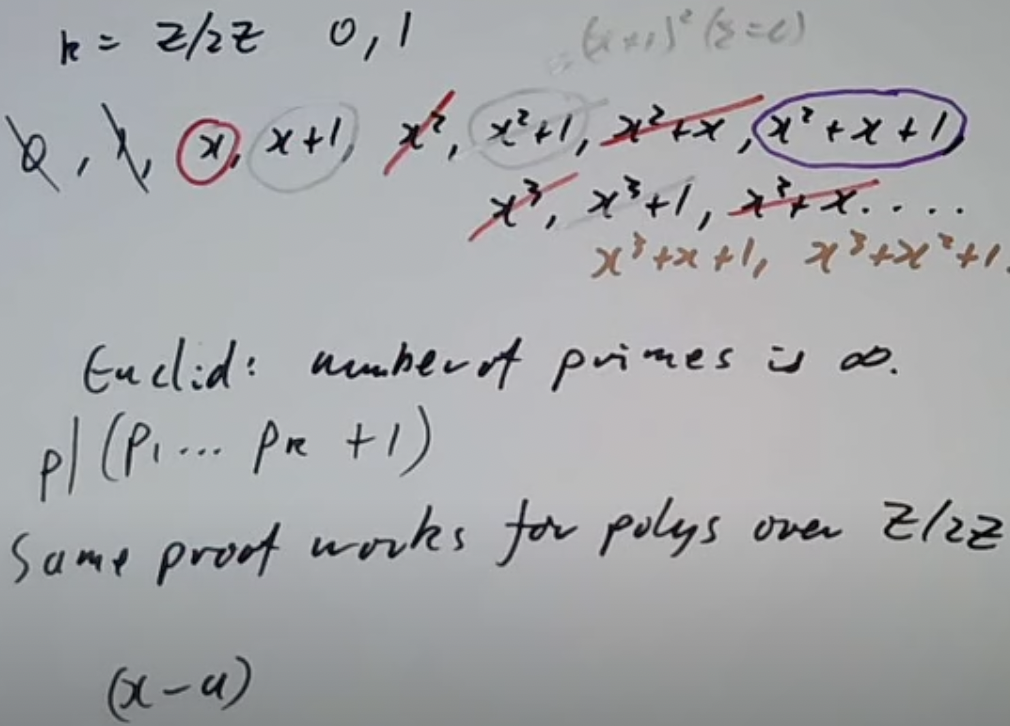 k = Z/2Z 0, 1
= (x+1)² (2=0)
0, 1, x, x+1 x², x²+1, x²+x, x²+x+1
x³, x³+1, x³+x....
x³+x+1, x³+x²+1.
Euclid: number of primes is ∞.
p|(p₁... pₖ +1)
Same proof works for polys over Z/2Z
(x-a)